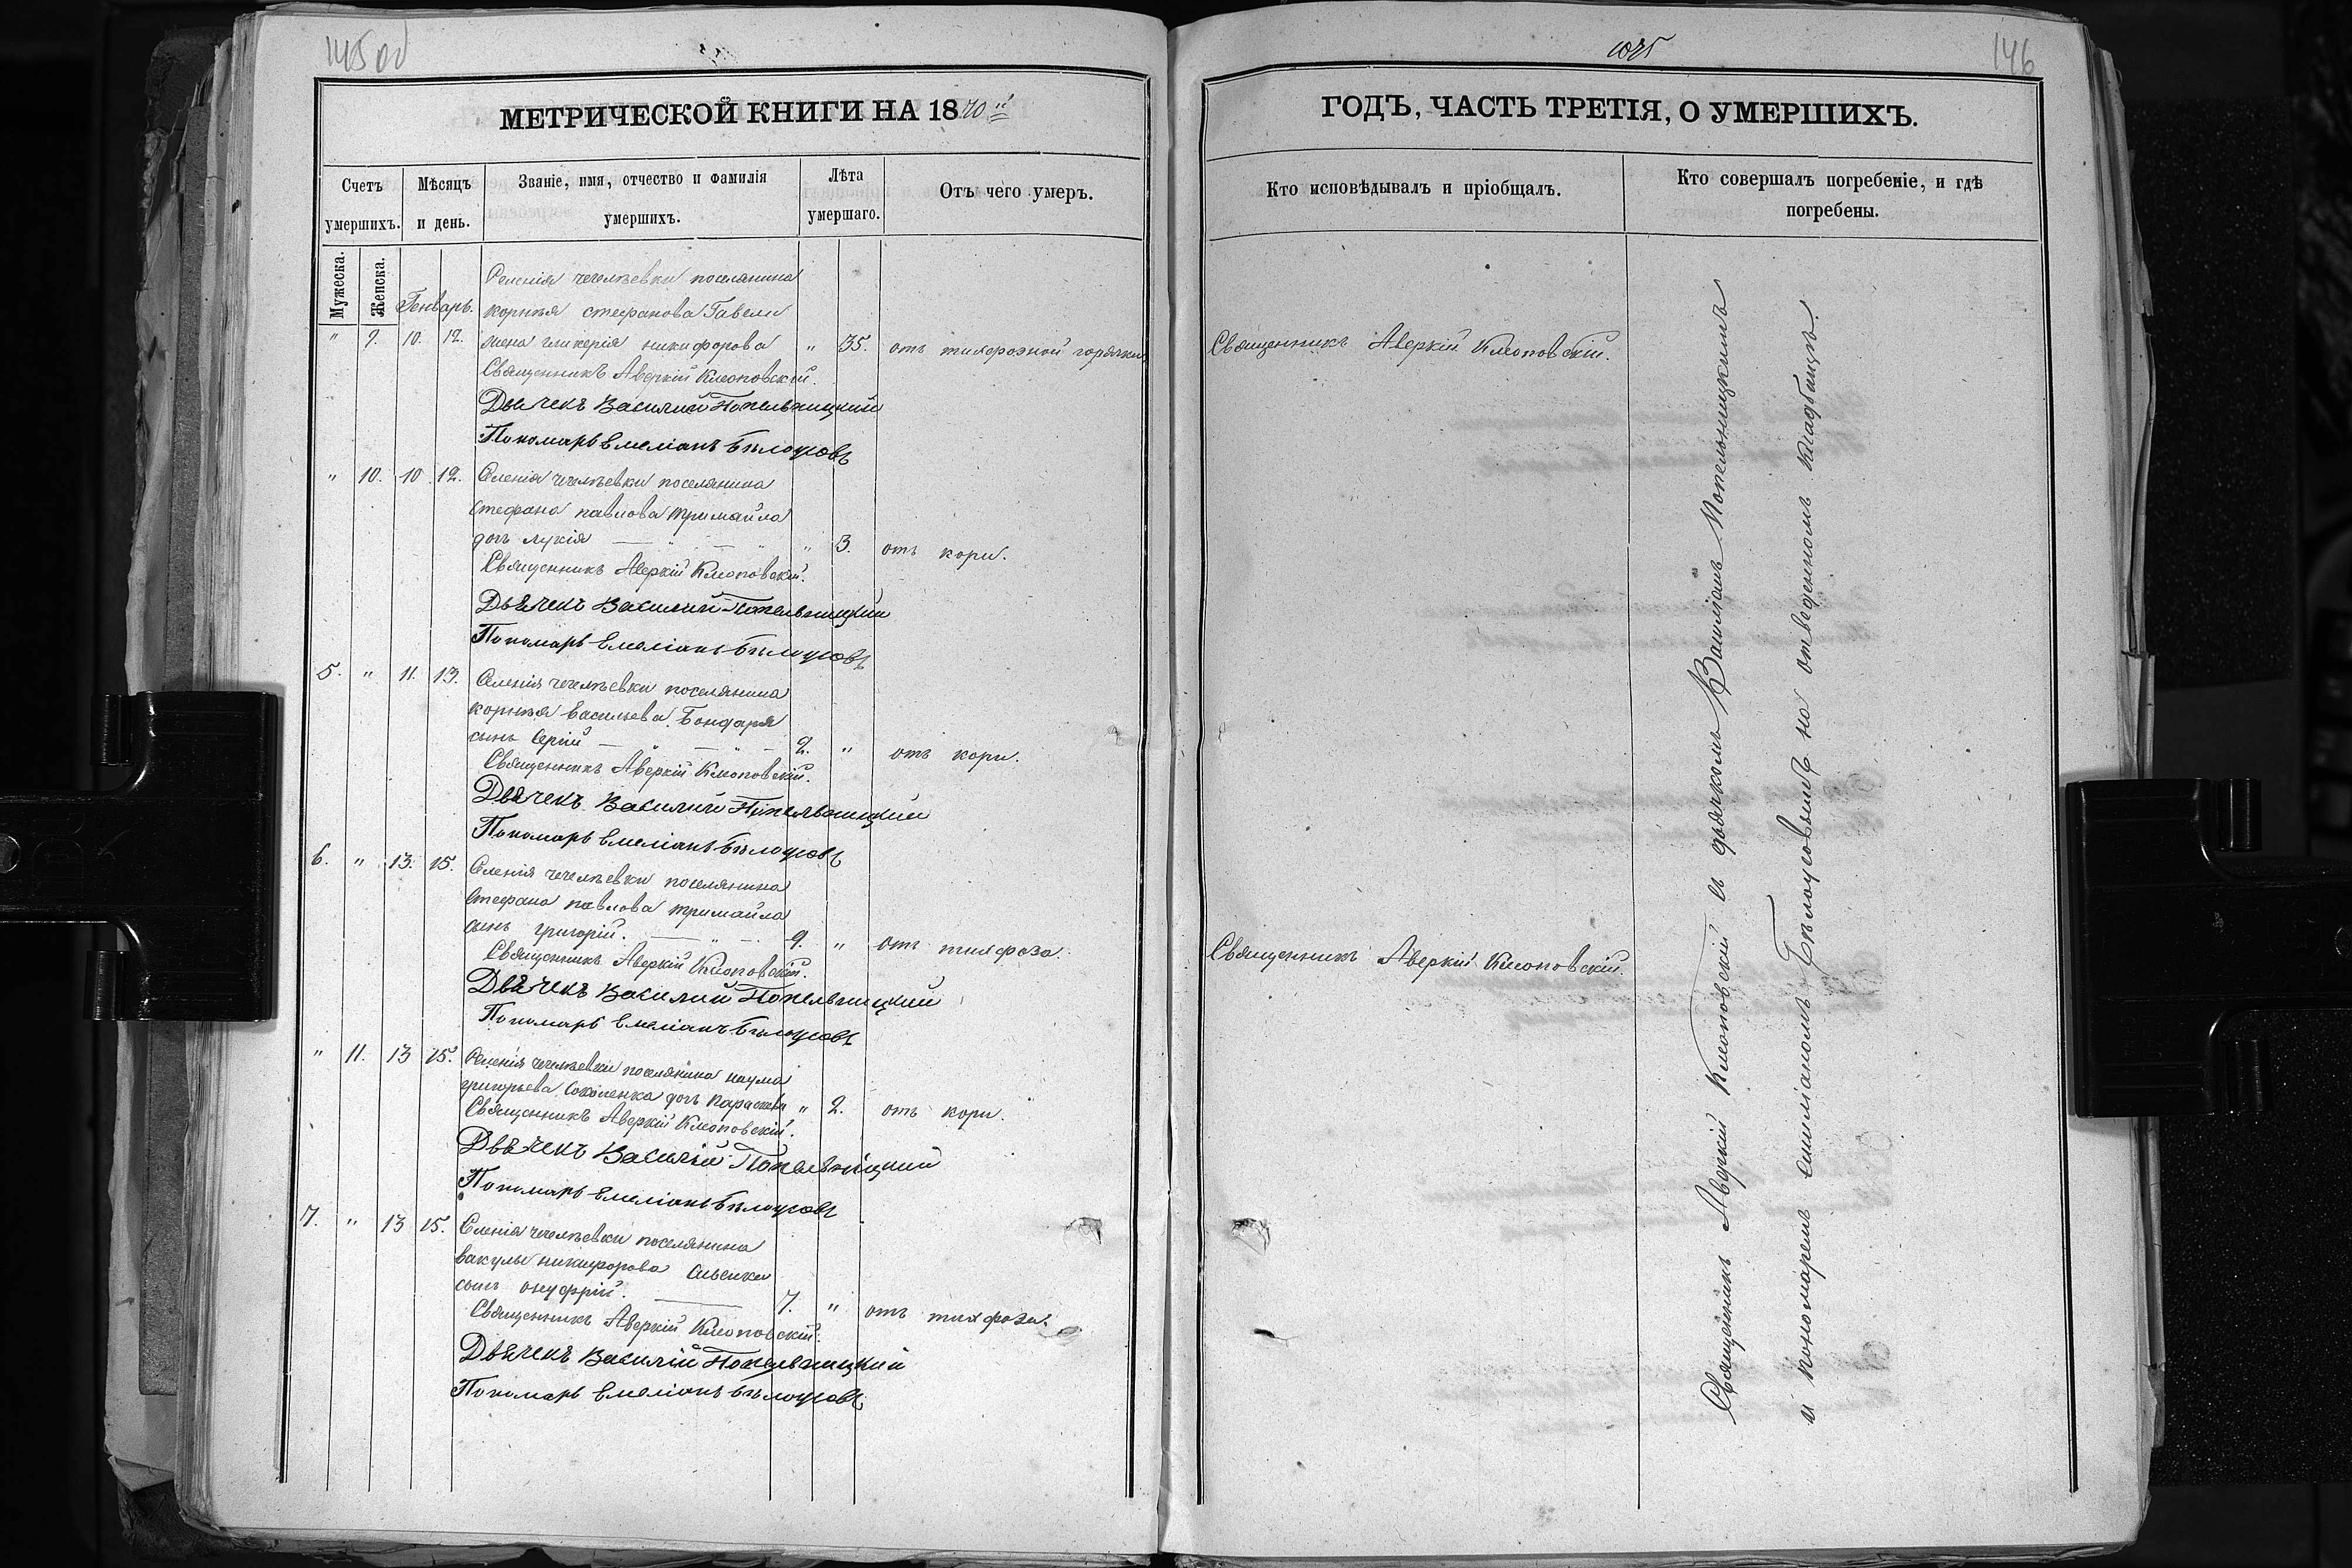 145 об
МЕТРИЧЕСКОЙ КНИГИ НА 1870й
Счетъ умершихъ.
Мѣсяцъ и день.
Званіе, имя, отчество и фамилія умершихъ.
Лѣта умершаго.
Отъ чего умеръ.
Мужеска.
Женска.
Генварь.
Селенія чечелѣевки поселянина
корнѣя стефанова Гавели
" 9. 10. 12. жена гликерія никифорова " 35. отъ тифозной горячки
Священникъ Аверкій Клеоповскій.
Дьячекъ Василий Попельницкий
Пономарь Емеліанъ Бѣлоусовъ
" 10. 10 12. Селенія чечелѣевки поселянина
стефана павлова тримайла
дочь лукія " 3. отъ кори.
Священникъ Аверкій Клеоповскій.
Дьячекъ Василий Попельницкий
Пономарь Емеліанъ Бѣлоусовъ
5. " 11. 13. Селенія чечелѣевки поселянина
корнѣя васильева Бондаря
сынъ Сергій 2. " отъ кори.
Священникъ Аверкій Клеоповскій.
Дьячекъ Василий Попельницкий
Пономарь Емеліанъ Бѣлоусовъ
6. " 13. 15. Селенія чечелѣевки поселянина
стефана павлова тримайла
сынъ григорій. 9. " отъ тифоза.
Священникъ Аверкій Клеоповскій.
Дьячекъ Василий Попельницкий
Пономарь Емеліанъ Бѣлоусовъ
" 11. 13 15. Селенія чечелѣевки поселянина наума
григорьева Соколенка дочь параскева " 2. отъ кори.
Священникъ Аверкій Клеоповскій.
Дьячекъ Василій Попельницкий
Пономарь Емеліанъ Бѣлоусовъ
7. " 13 15. Селенія чечелѣевки поселянина
вакулы никифорова
сынъ онуфрій. 7. " отъ тифоза.
Священникъ Аверкій Клеоповскій.
Дьячекъ Василій Попельницкий
Пономарь Емеліанъ Бѣлоусовъ
146
ГОДЪ, ЧАСТЬ ТРЕТІЯ, О УМЕРШИХЪ.
Кто исповѣдывалъ и пріобщалъ.
Кто совершалъ погребеніе, и гдѣ погребены.
Священникъ Аверкій Клеоповскій.
Священникъ Аверкій Клеоповскій.
Священникъ Аверкій Клеоповскій съ дьячкомъ Василіемъ Попельницкимъ
и пономаремъ емиліаномъ Бѣлоусовымъ на отведенномъ кладбищѣ.